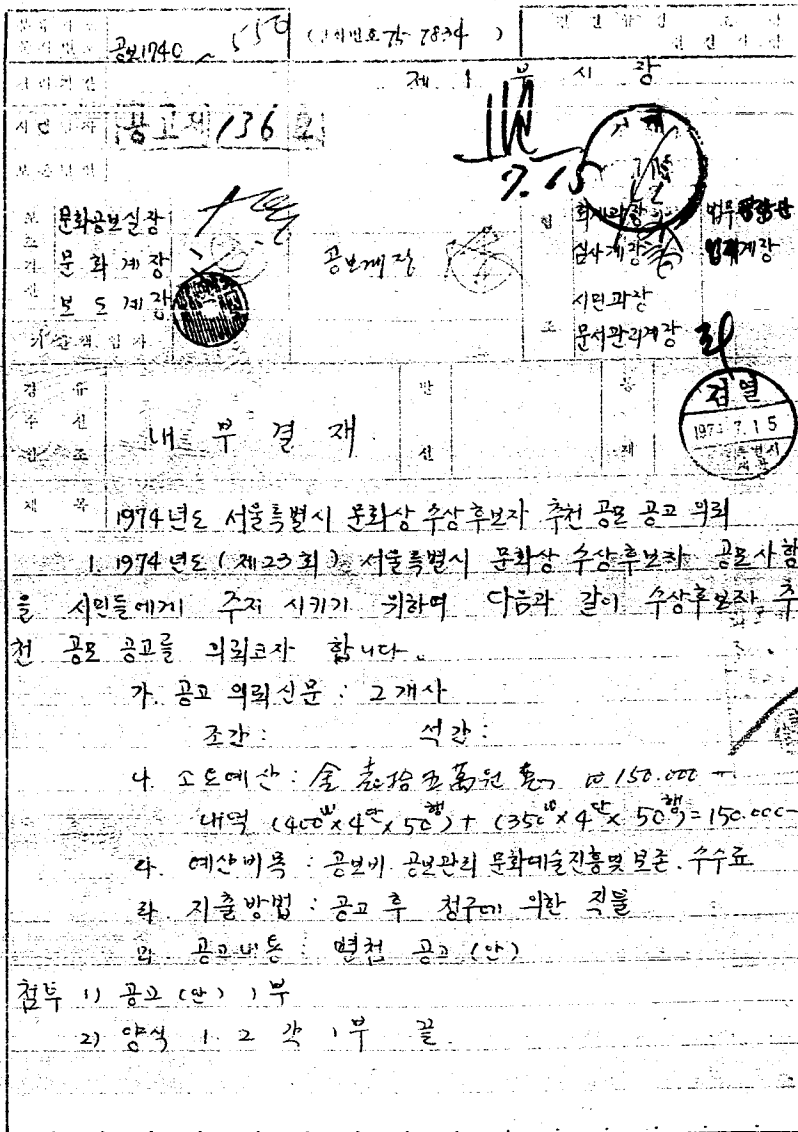 공보1740 - 550 (전화번호 75-7834)
제 1 부 시 장
공고제 1362
7.15
문화공보실장
문화계장
보도계장
공보계장
회계과장
심사계장
시민과장
문서관리계장
법무담당관
법제계장
협
조
경 유
수 신
참 조
내 부 결 재
발
신
통
제
검열
1974. 7. 15
제 목 1974년도 서울특별시 문화상 수상후보자 추천 공모 공고 의뢰
1. 1974년도 (제23회) 서울특별시 문화상 수상후보자 공모사항
을 시민들에게 주지 시키기 위하여 다음과 같이 수상후보자 추
천 공모 공고를 의뢰코자 합니다.
가. 공고 의뢰신문 : 2개사
조간 : 석간 :
나. 소요예산 : 金 壹拾五萬원 整 ₩150.000-
내역 (400₩×4단×50행) + (350₩×4단×50행)=150.000-
다. 예산비목 : 공보비. 공보관리 문화예술진흥및보존. 수수료
라. 지출방법 : 공고 후 청구에 의한 직불
마. 공고내용 : 별첨 공고 (안)
첨부 1) 공고 (안) 1부
2) 양식 1. 2 각 1부 끝.